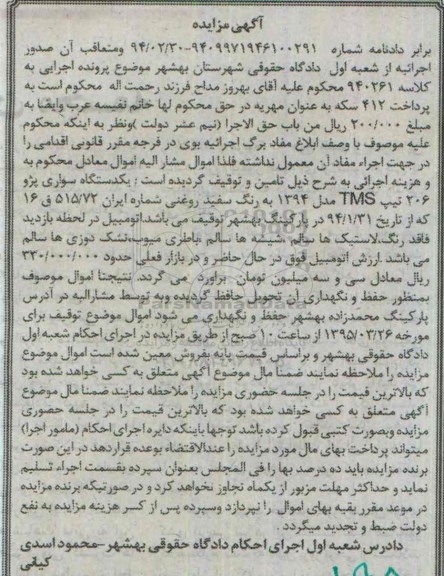 آگهی مزایده
برابر دادنامه شماره ۹۴۰۹۹۷۱۹۴۶۱۰۰۲۹۱-۹۴/۰۲/۳۰ ومتعاقب آن صدور
اجرائیه از شعبه اول دادگاه حقوقی شهرستان بهشهر موضوع پرونده اجرایی به
کلاسه ۹۴۰۲۶۱ محکوم علیه آقای بهروز مداح فرزند رحمت اله محکوم است به
پرداخت ۴۱۲ سکه به عنوان مهریه در حق محکوم لها خانم نفیسه عرب وایضا به
مبلغ ۲۰۰/۰۰۰ ریال من باب حق الاجرا (نیم عشر دولت )ونظر به اینکه محکوم
علیه موصوف با وصف ابلاغ مفاد برگ اجرائیه بوی در فرجه مقرر قانونی اقدامی را
در جهت اجراء مفاد آن معمول نداشته فلذا اموال مشار الیه اموال معادل محکوم به
و هزینه اجرائی به شرح ذیل تامین و توقیف گردیده است : یکدستگاه سواری پژو
۲۰۶ تیپ TMS مدل ۱۳۹۴ به رنگ سفید روغنی شماره ایران ۷۲/۵۱۵ ق ۱۶
که از تاریخ ۹۴/۱/۳۱ در پارکینگ بهشهر توقیف می باشد.اتومبیل در لحظه بازدید
فاقد رنگ،لاستیک ها سالم شیشه ها سالم باطری میوب،تشک دوزی ها سالم
می باشد .ارزش اتومبیل فوق در حال حاضر و در بازار فعلی حدود ۳۳۰/۰۰۰/۰۰۰
ریال معادل سی و سه میلیون تومان براورد می گردد. نتیجتا اموال موصوف
بمنظور حفظ و نگهداری آن تحویل حافظ گردیده وبه توسط مشارالیه در آدرس
پارکینگ محمدزاده بهشهر حفظ و نگهداری می شود اموال موضوع توقیف برای
مورخه ۱۳۹۵/۰۳/۲۶ از ساعت ۱۰ صبح از طریق مزایده در اجرای احکام شعبه اول
دادگاه حقوقی بهشهر و براساس قیمت پایه بفروش معین شده است اموال موضوع
مزایده را ملاحظه نمایند ضمنا مال موضوع آگهی متعلق به کسی خواهد شده بود
که بالاترین قیمت را در جلسه حضوری مزایده را ملاحظه نمایند ضمنا مال موضوع
آگهی متعلق به کسی خواهده شده بود که بالاترین قیمت را در جلسه حضوری
مزایده وبصورت کتبی قبول کرده باشد توجها باینکه دایره اجرای احکام (مامور اجرا)
میتواند پرداخت بهای مال مورد مزایده را عندالاقتضاء بوعده قراردهد در این صورت
برنده مزایده باید ده درصد بها را فی المجلس بعنوان سپرده بقسمت اجراء تسلیم
نماید و حداکثر مهلت مزبور از یکماه تجاوز نخواهد کرد و در صورتیکه برنده مزایده
در موعد مقرر بقیه بهای اموال را نپردازد وسپرده پس از کسر هزینه مزایده به نفع
دولت ضبط و تجدید میگردد .
دادرس شعبه اول اجرای احکام دادگاه حقوقی بهشهر –محمود اسدی
کیانی